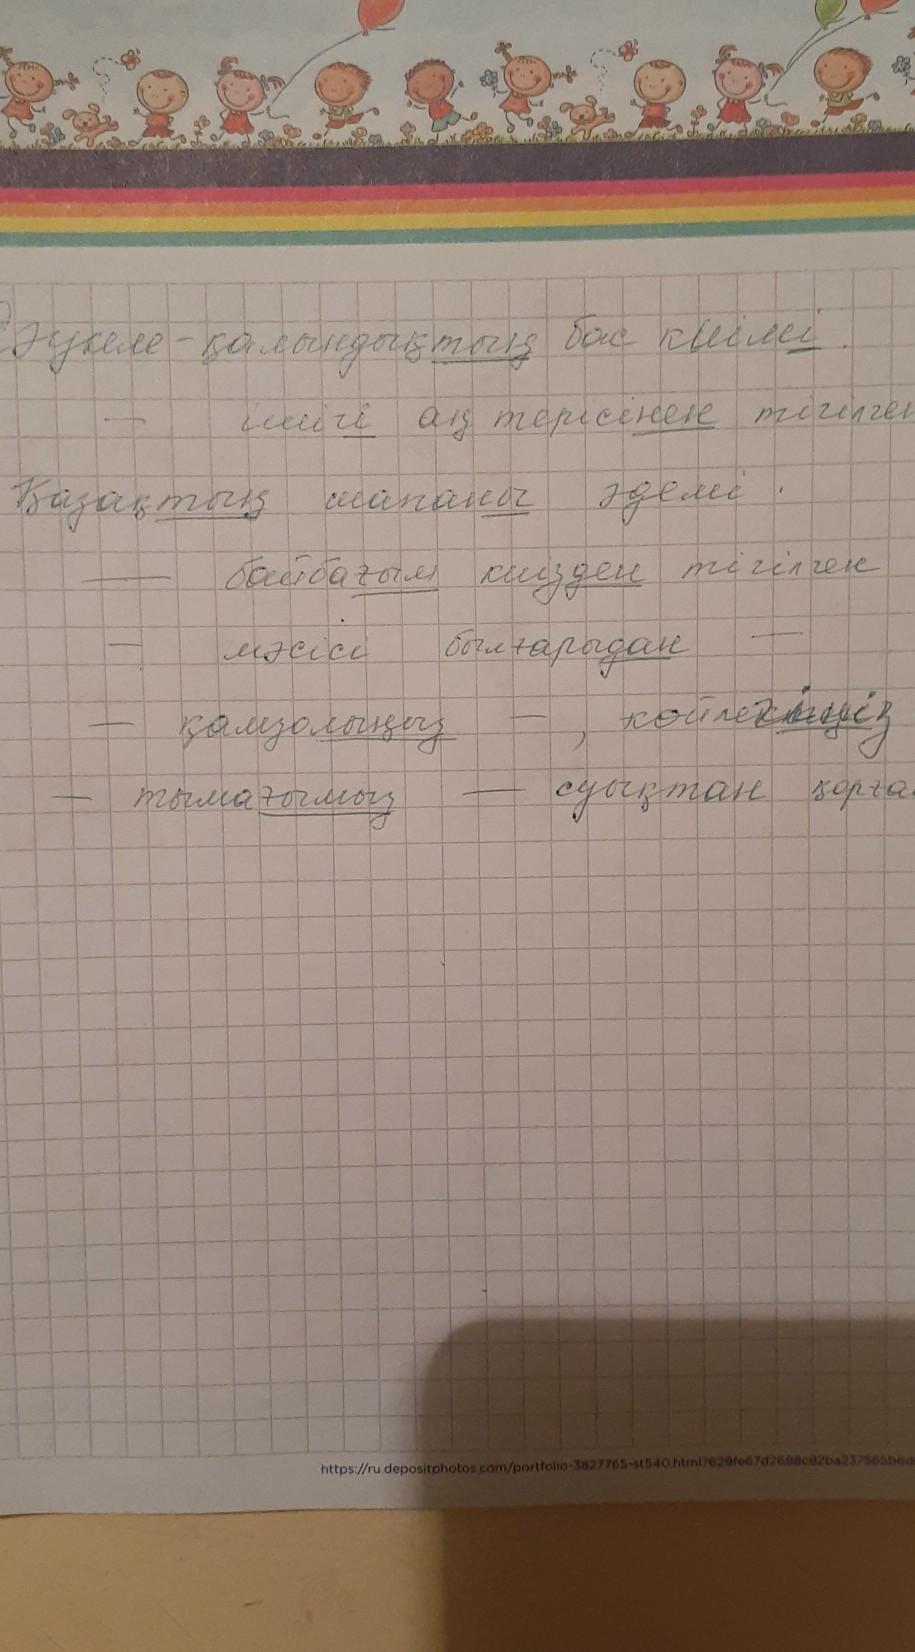 Әукеле - қалыңдықтың бас киімі.
— ішігі аң терісінен тігілген
Қазақтың шапаны әдемі.
— байбағым киізден тігілген
— мәсісі былғарыдан —
— қамзолыңыз — , көйлегіңіз
— тымағымыз — суықтан қорға
https://ru.depositphotos.com/portfolio-3827765-st540.html?